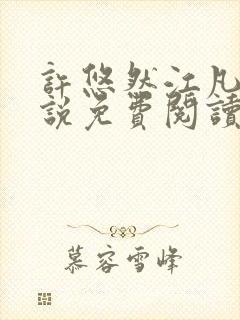 許悠然江凡
說免費閱讀
慕容雪峰